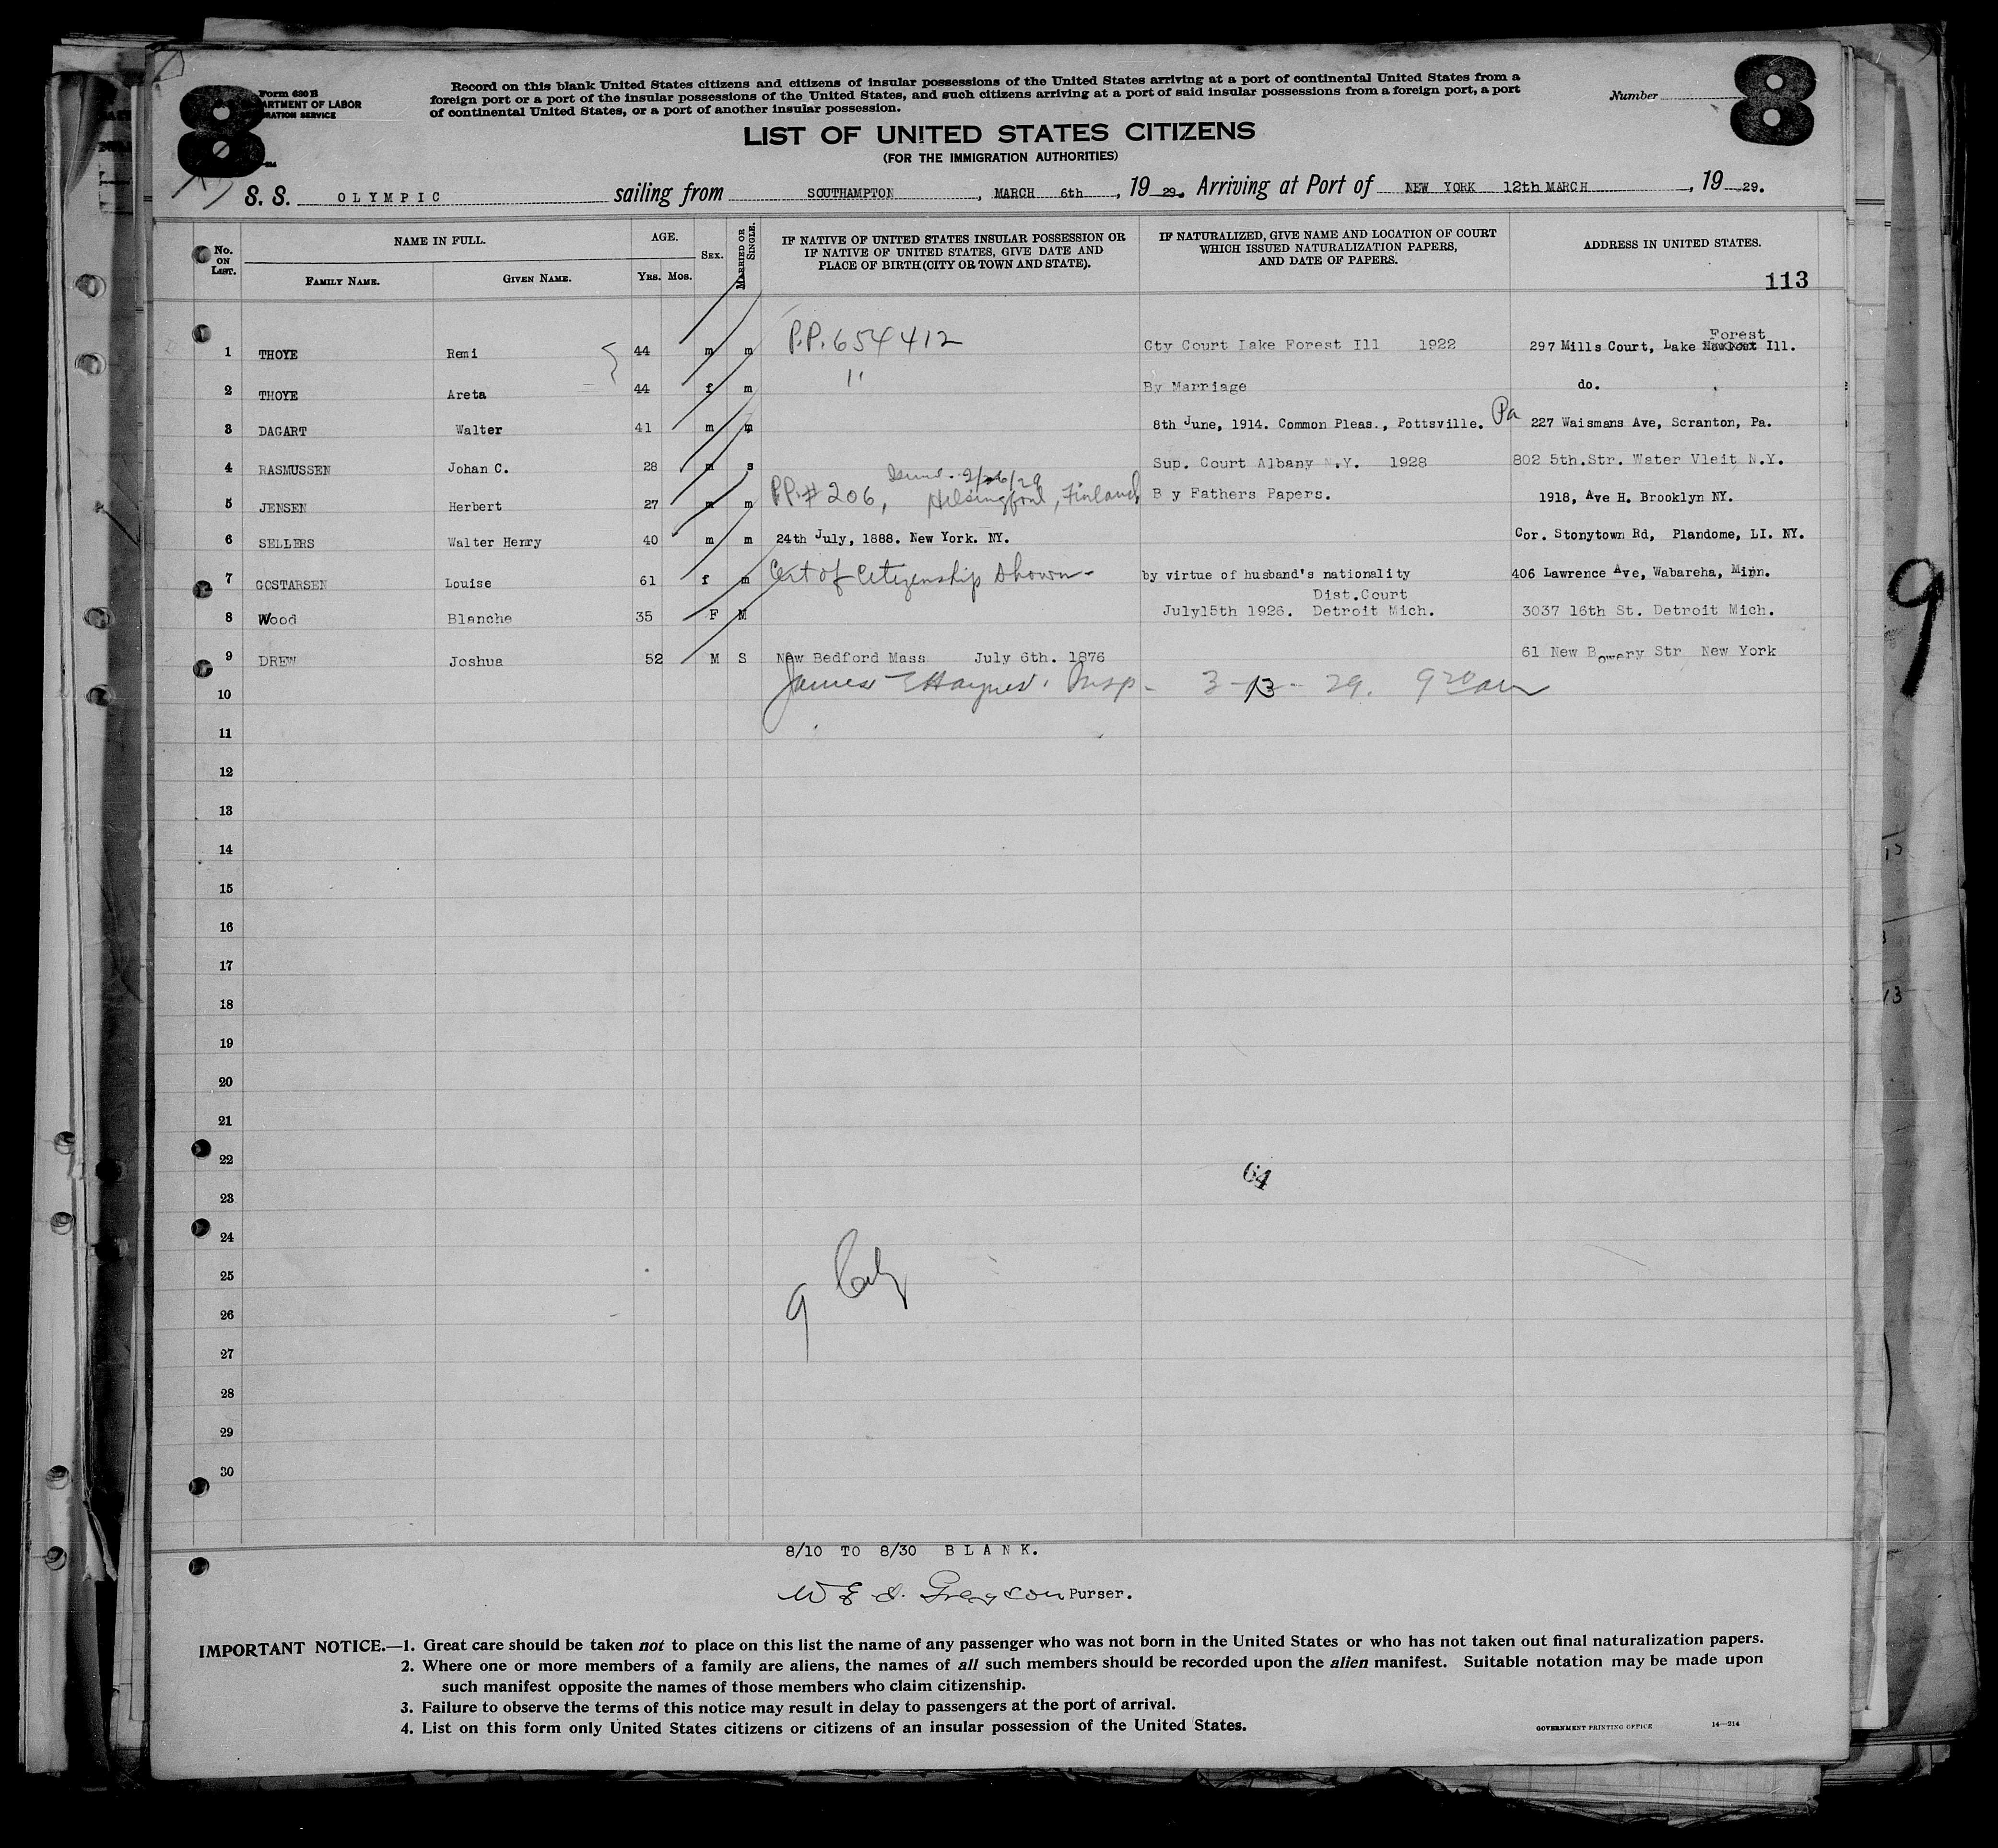 8
Form 630 B
ARTMENT OF LABOR
RATION SERVICE
Record on this blank United States citizens and citizens of insular possessions of the United States arriving at a port of continental United States from a
foreign port or a port of the insular possessions of the United States, and such citizens arriving at a port of said insular possessions from a foreign port, a port
of continental United States, or a port of another insular possession.
Number
8
LIST OF UNITED STATES CITIZENS
(FOR THE IMMIGRATION AUTHORITIES)
S. S. OLYMPIC sailing from SOUTHAMPTON, MARCH 6th, 19 29. Arriving at Port of NEW YORK 12th MARCH, 19 29.
No. ON LIST. NAME IN FULL. FAMILY NAME. GIVEN NAME. AGE. YRS. MOS. SEX. MARRIED OR SINGLE. IF NATIVE OF UNITED STATES INSULAR POSSESSION OR IF NATIVE OF UNITED STATES, GIVE DATE AND PLACE OF BIRTH (CITY OR TOWN AND STATE). IF NATURALIZED, GIVE NAME AND LOCATION OF COURT WHICH ISSUED NATURALIZATION PAPERS, AND DATE OF PAPERS. ADDRESS IN UNITED STATES.
113
1 THOYE Remi 44 m m P.P. 654412 Cty Court Lake Forest Ill 1922 297 Mills Court, Lake Forest Ill.
2 THOYE Areta 44 f m " By Marriage do.
3 DAGART Walter 41 m m 8th June, 1914. Common Pleas., Pottsville. Pa 227 Waismans Ave, Scranton, Pa.
4 RASMUSSEN Johan C. 28 m s Sup. Court Albany N.Y. 1928 802 5th.Str. Water Vleit N.Y.
5 JENSEN Herbert 27 m m P.P. # 206, 2/26/29 Helsingfors, Finland B y Fathers Papers. 1918, Ave H. Brooklyn NY.
6 SELLERS Walter Henry 40 m m 24th July, 1888. New York. NY. Cor. Stonytown Rd, Plandome, LI. NY.
7 GOSTARSEN Louise 61 f m Cert of Citizenship Shown - by virtue of husband's nationality 406 Lawrence Ave, Wabareha, Minn.
8 Wood Blanche 35 F M July15th 1926. Dist.Court Detroit Mich. 3037 16th St. Detroit Mich.
9 DREW Joshua 52 M S New Bedford Mass July 6th. 1876 61 New Bowery Str New York
10 James Haynes, Insp - 3-13-29. 9 20 am
11
12
13
14
15
16
17
18
19
20
21
22
23
24
25
26
27
28
29
30
64
9
9
8/10 TO 8/30 BLANK.
Purser.
IMPORTANT NOTICE.—1. Great care should be taken not to place on this list the name of any passenger who was not born in the United States or who has not taken out final naturalization papers.
2. Where one or more members of a family are aliens, the names of all such members should be recorded upon the alien manifest. Suitable notation may be made upon
such manifest opposite the names of those members who claim citizenship.
3. Failure to observe the terms of this notice may result in delay to passengers at the port of arrival.
4. List on this form only United States citizens or citizens of an insular possession of the United States.
GOVERNMENT PRINTING OFFICE 14—214